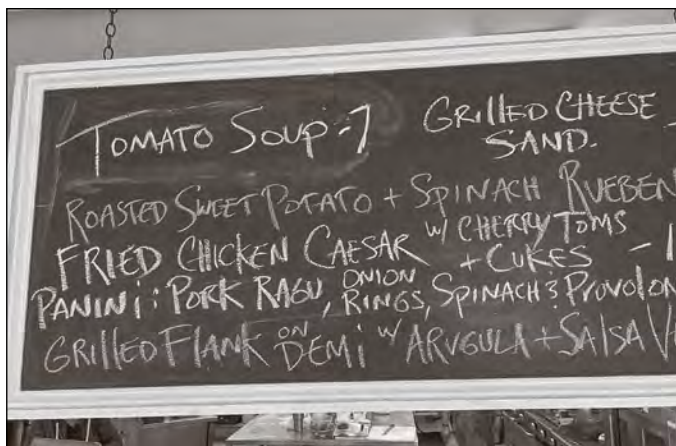 TOMATO SOUP -7
GRILLED CHEESE
SAND. -
ROASTED SWEET POTATO + SPINACH RUEBEN
FRIED CHICKEN CAESAR W/ CHERRY TOMS
+ CUKES -
PANINI: PORK RAGU, ONION RINGS, SPINACH & PROVOLON
GRILLED FLANK ON DEMI W/ ARUGULA + SALSA V